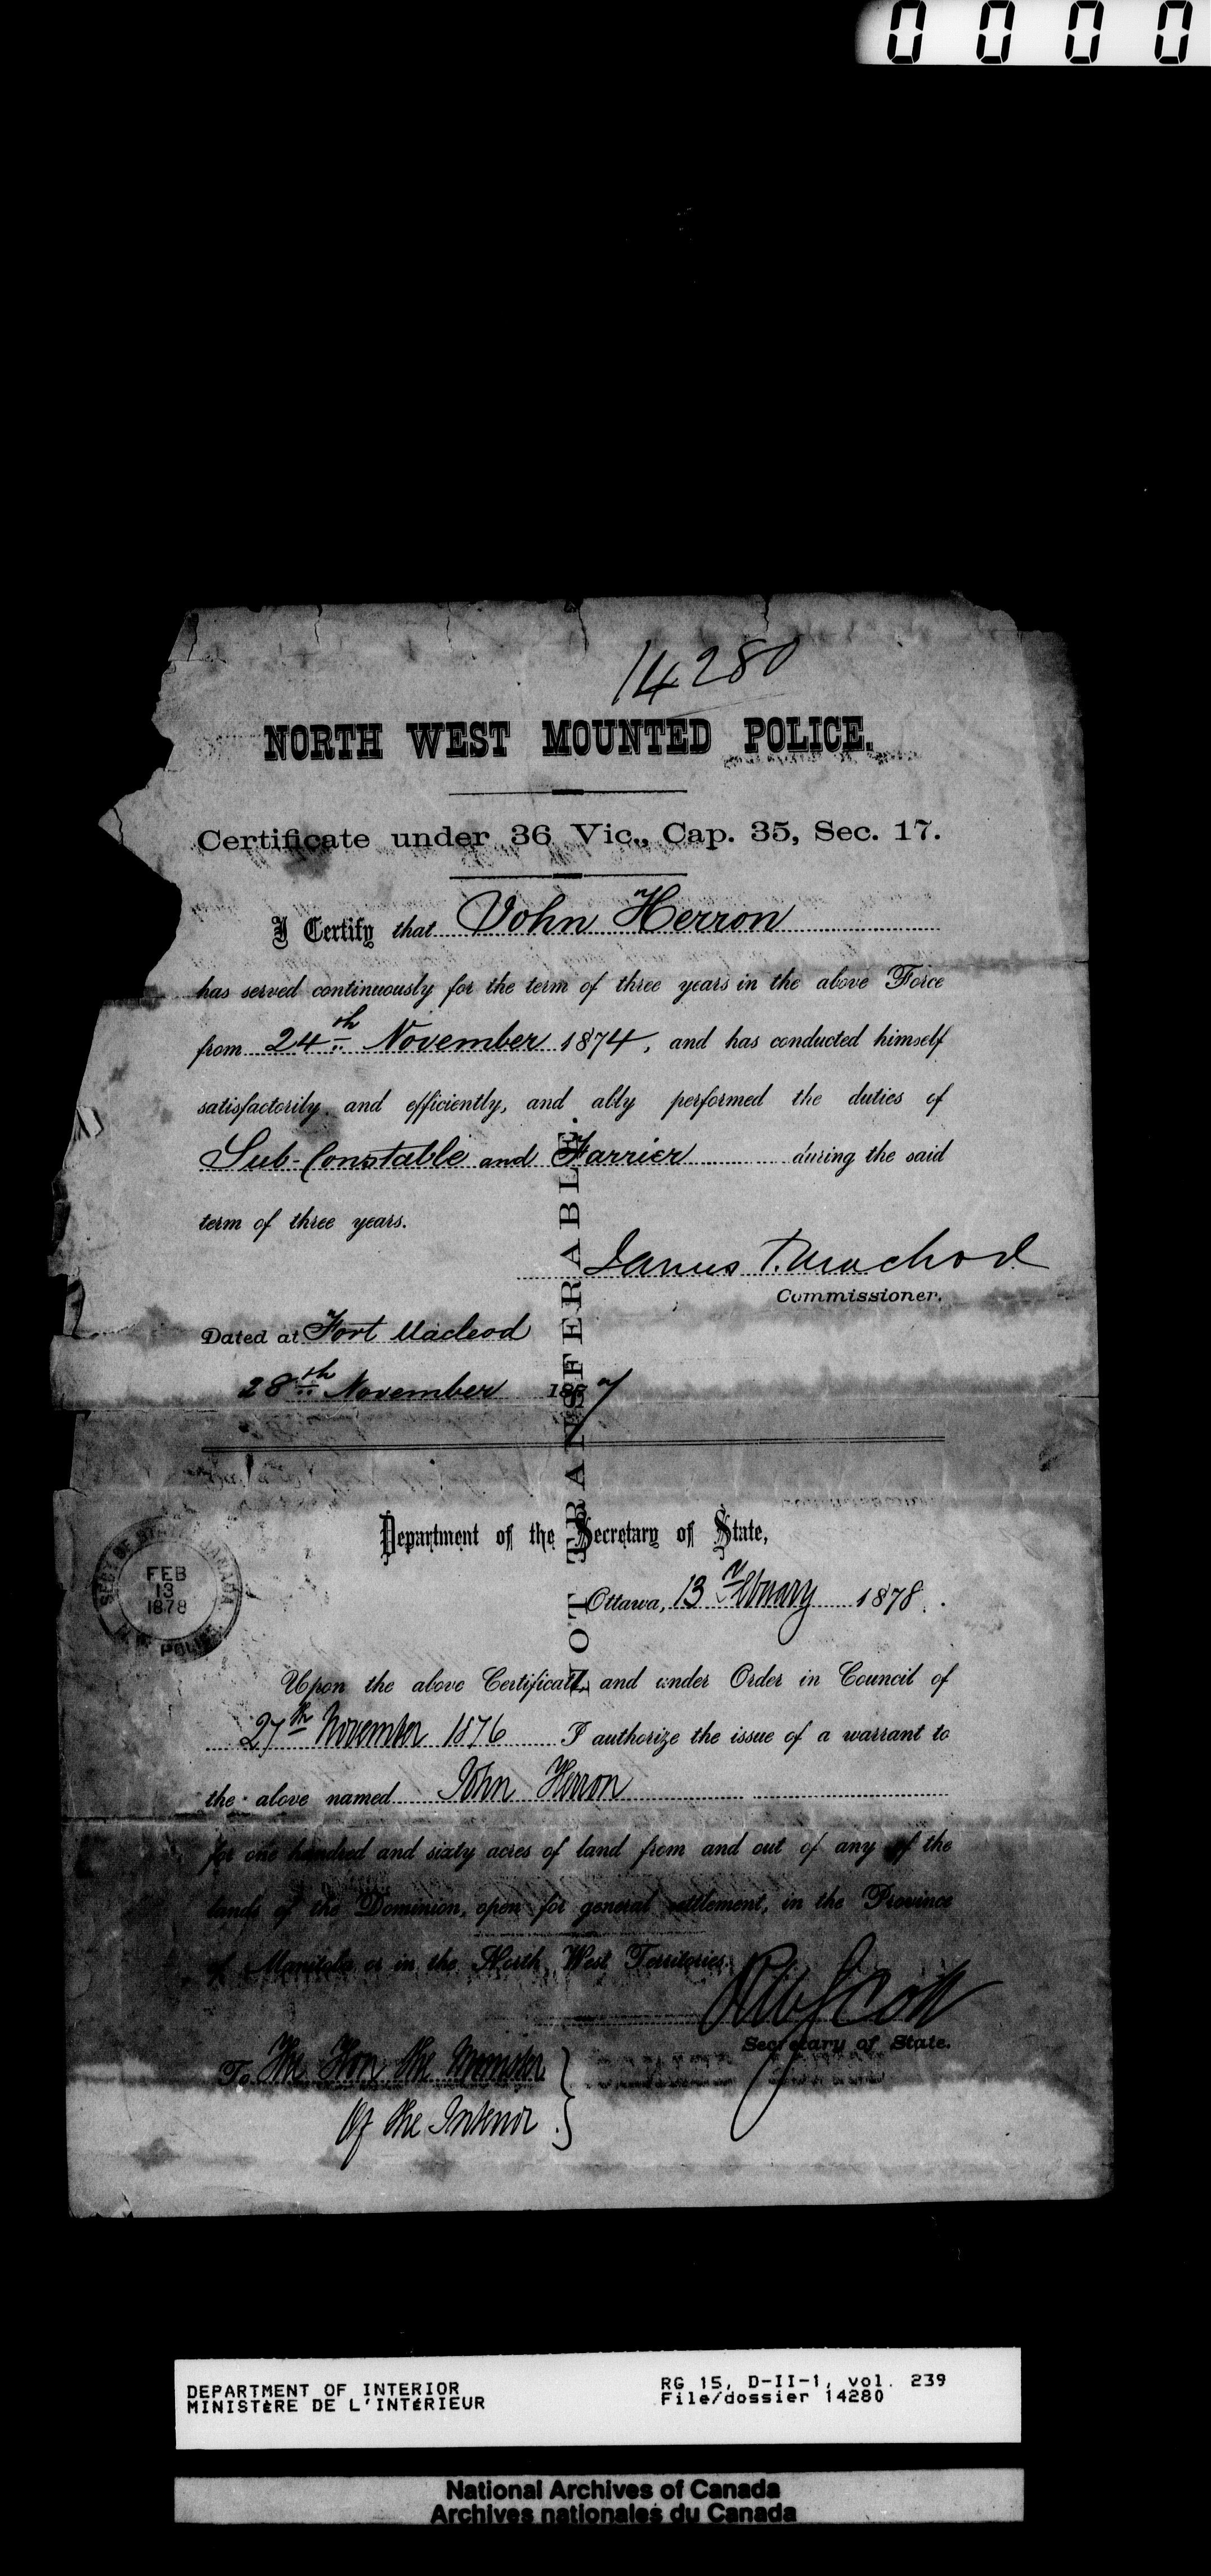 0 0 0 0
14280
NORTH WEST MOUNTED POLICE.
Certificate under 36 Vic., Cap. 35, Sec. 17.
I Certify that John Herron
has served continuously for the term of three years in the above Force
from 24th November 1874, and has conducted himself
satisfactorily and efficiently, and ably performed the duties of
Sub-Constable and Farrier during the said
term of three years.
James F. Macleod
Commissioner.
Dated at Fort Macleod
28th November 1877
NOT TRANSFERABLE.
Department of the Secretary of State,
SECY OF STATE CANADA
FEB
13
1878
N.W. POLICE
Ottawa, 13 February 1878.
Upon the above Certificate, and under Order in Council of
27th November 1876 I authorize the issue of a warrant to
the above named John Herron
for one hundred and sixty acres of land from and out of any of the
lands of the Dominion, open for general settlement, in the Province
of Manitoba or in the North West Territories.
RW Scott
Secretary of State.
To The Hon the Minister
Of the Interior
DEPARTMENT OF INTERIOR
MINISTÈRE DE L'INTÉRIEUR
RG 15, D-II-1, vol. 239
File/dossier 14280
National Archives of Canada
Archives nationales du Canada